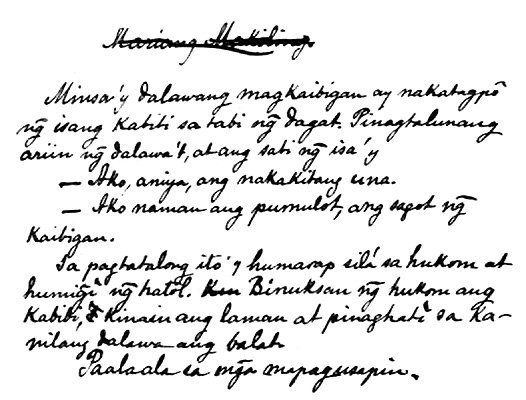 Mariang Makiling.
Minsa'y dalawang magkaibigan ay nakatagpô
ng̃ isang kabibi sa tabi ng̃ dagat. Pinagtalunang
ariin ng̃ dalawa't, at ang sabi ng̃ isa'y
— Ako, aniya, ang nakakitang una.
— Ako naman ang pumulot, ang sagot ng̃
kaibigan.
Sa pagtatalong ito'y humarap silá sa hukom at
humiṅgî ng̃ hatol. Binuksan ng̃ hukom ang
kabibi, kinain ang laman at pinaghatì sa ka-
nilang dalawa ang balat.
Paalaala sa mg̃a mapagusapin.